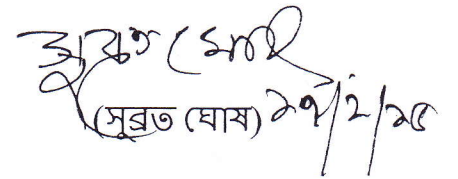 সুব্রত ঘোষ
(সুব্রত ঘোষ) ১৭/২/১৫